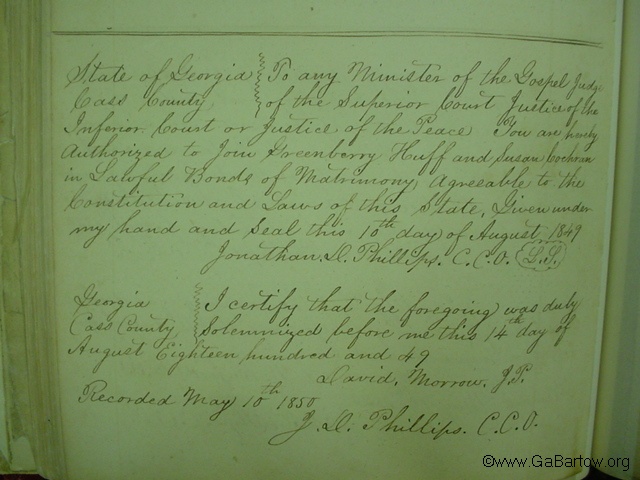 State of Georgia To any Minister of the Gospel Judge
Cass County of the Superior Court Justice of the
Inferior Court or Justice of the Peace You are hereby
Authorized to Join Greenberry Huff and Susan Cochran
in Lawful Bonds of Matrimony, Agreeable to the
Constitution and Laws of this State, Given under
my hand and Seal this 10th day of August 1849
Jonathan. D. Phillips. C.C.O. L.S.
Georgia I certify that the foregoing was duly
Cass County Solemnized before me this 14th day of
August Eighteen hundred and 49
David, Morrow. J.P.
Recorded May 10th 1850
J. D. Phillips. C.C.O.
©www.GaBartow.org